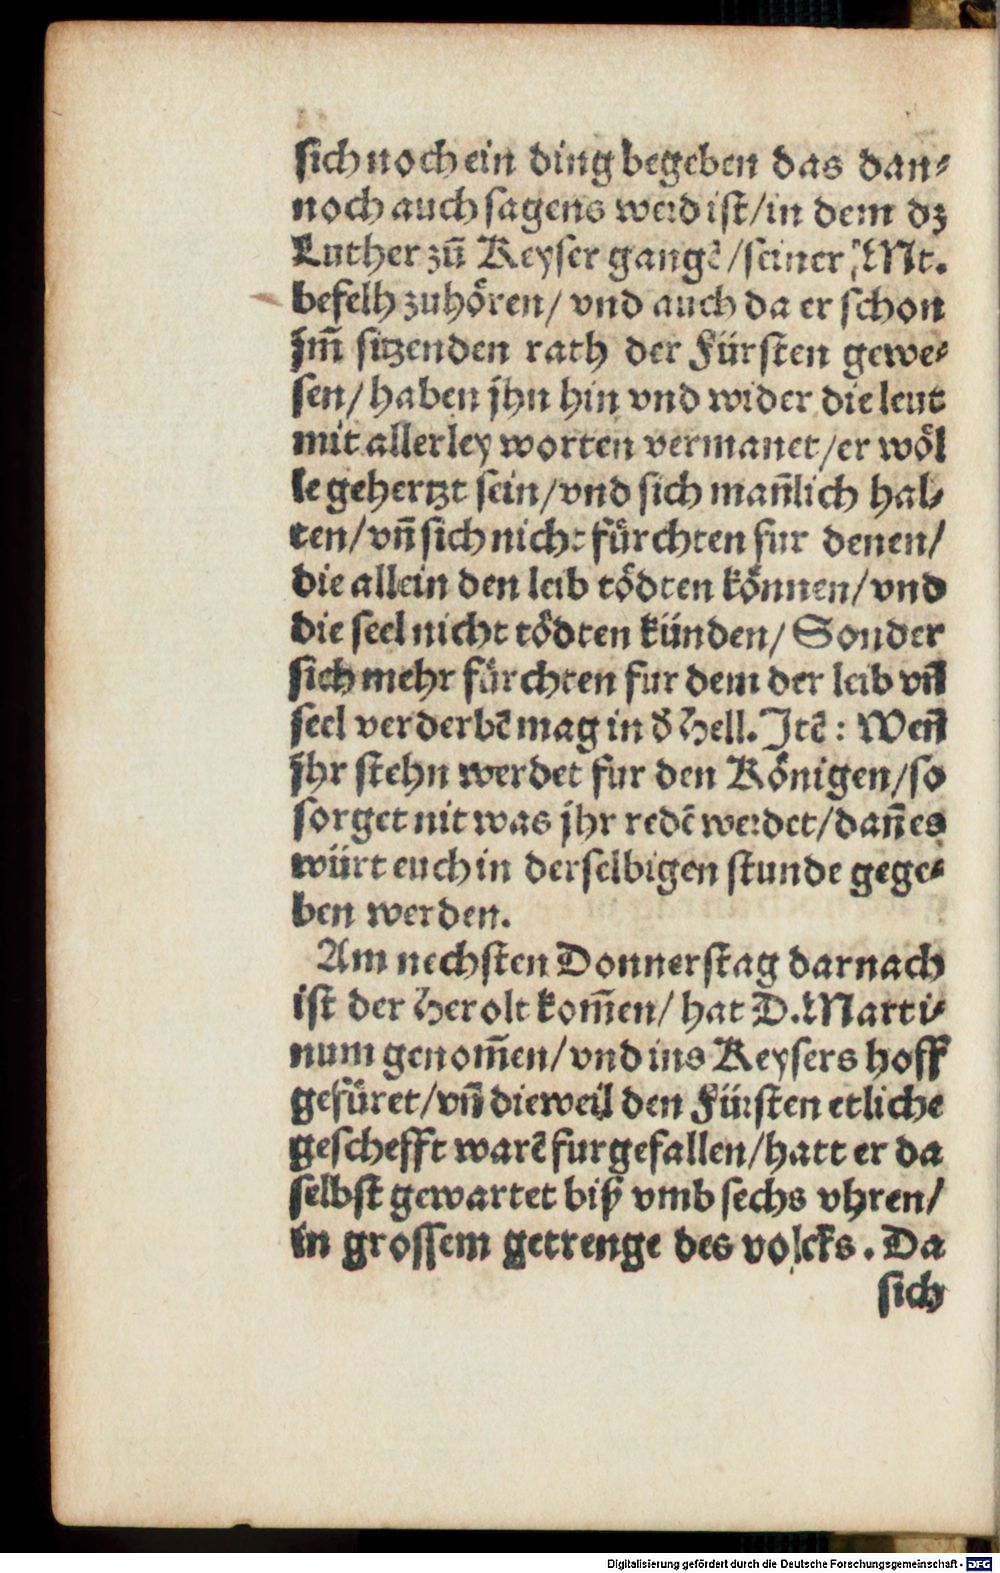 sich noch ein ding begeben das dan⸗
noch auch sagens werd ist/in dem dz
Luther zū Keyser gangē/seiner Mt.
befelh zuhören/ vnd auch da er schon
jm̄ sitzenden rath der Fürsten gewe⸗
sen/ haben jhn hin vnd wider die leut
mit allerley worten vermanet/er wöl
le gehertzt sein/vnd sich man̄lich hal⸗
ten/vn̄ sich nicht fürchten fur denen/
die allein den leib tödten können/vnd
die seel nicht tödten künden/ Sonder
sich mehr fürchten fur dem der leib vn̄
seel verderbē mag in d̄ Hell. Itē: Wen̄
jhr stehn werdet fur den Königen/so
sorget nit was jhr redē werdet/dan̄ es
würt euch in derselbigen stunde gege⸗
ben werden.
Am nechsten Donnerstag darnach
ist der Herolt kom̄en/ hat D. Marti⸗
num genom̄en/vnd ins Keysers hoff
gefüret/vn̄ dieweil den Fürsten etliche
geschefft warē furgefallen/hatt er da
selbst gewartet biß vmb sechs vhren/
in grossem getrenge des volcks. Da
sich
Digitalisierung gefördert durch die Deutsche Forschungsgemeinschaft - DFG